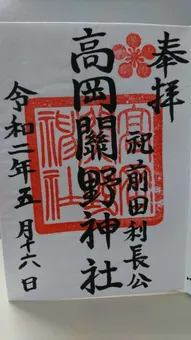 奉拝
祀前田利長公
高岡關野神社
令和二年五月十六日